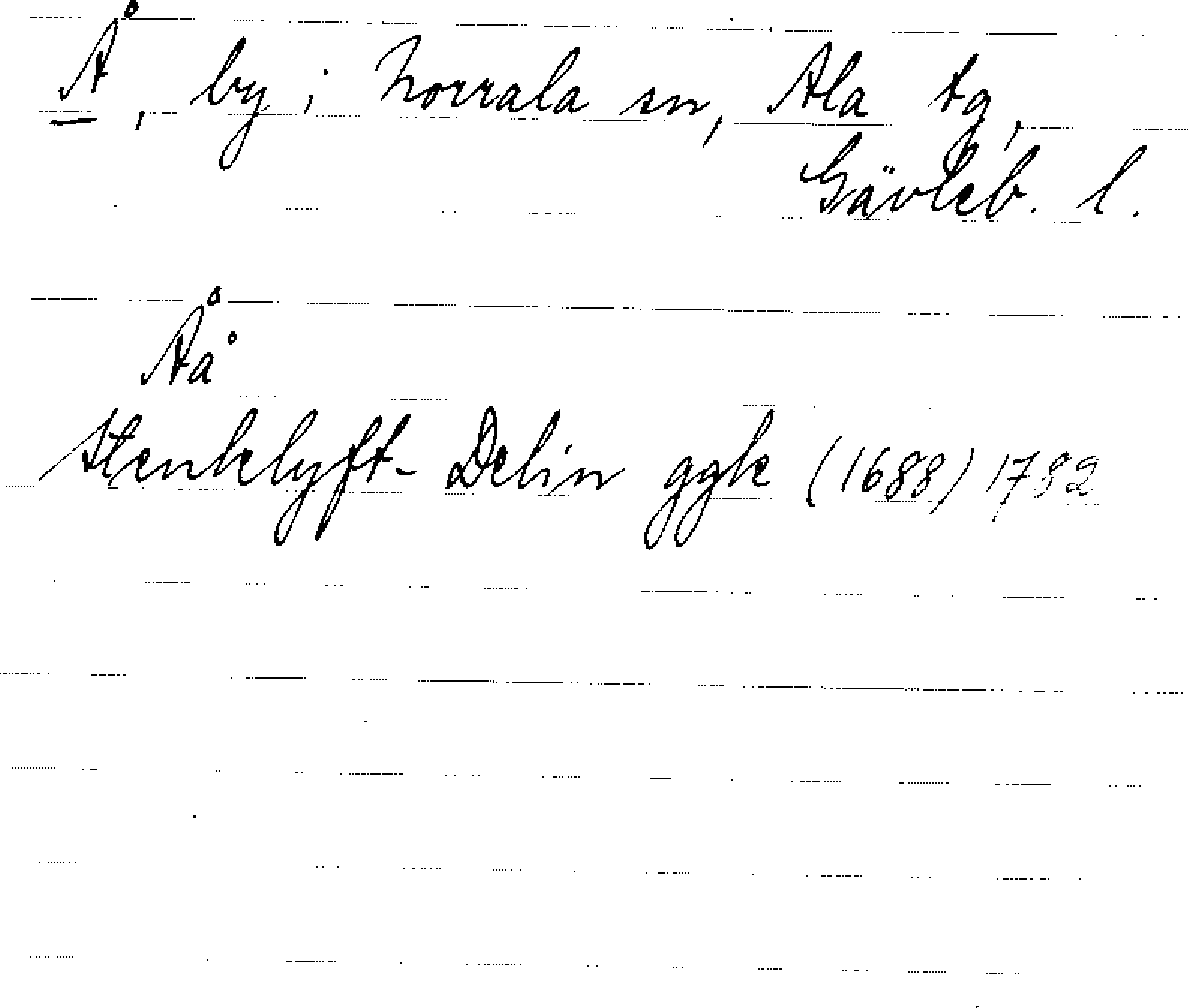 Å, by i Norrala sn, Ala tg,
Gävleb. l.
Åå
Stenklyft- Delin ggk (1688) 1792